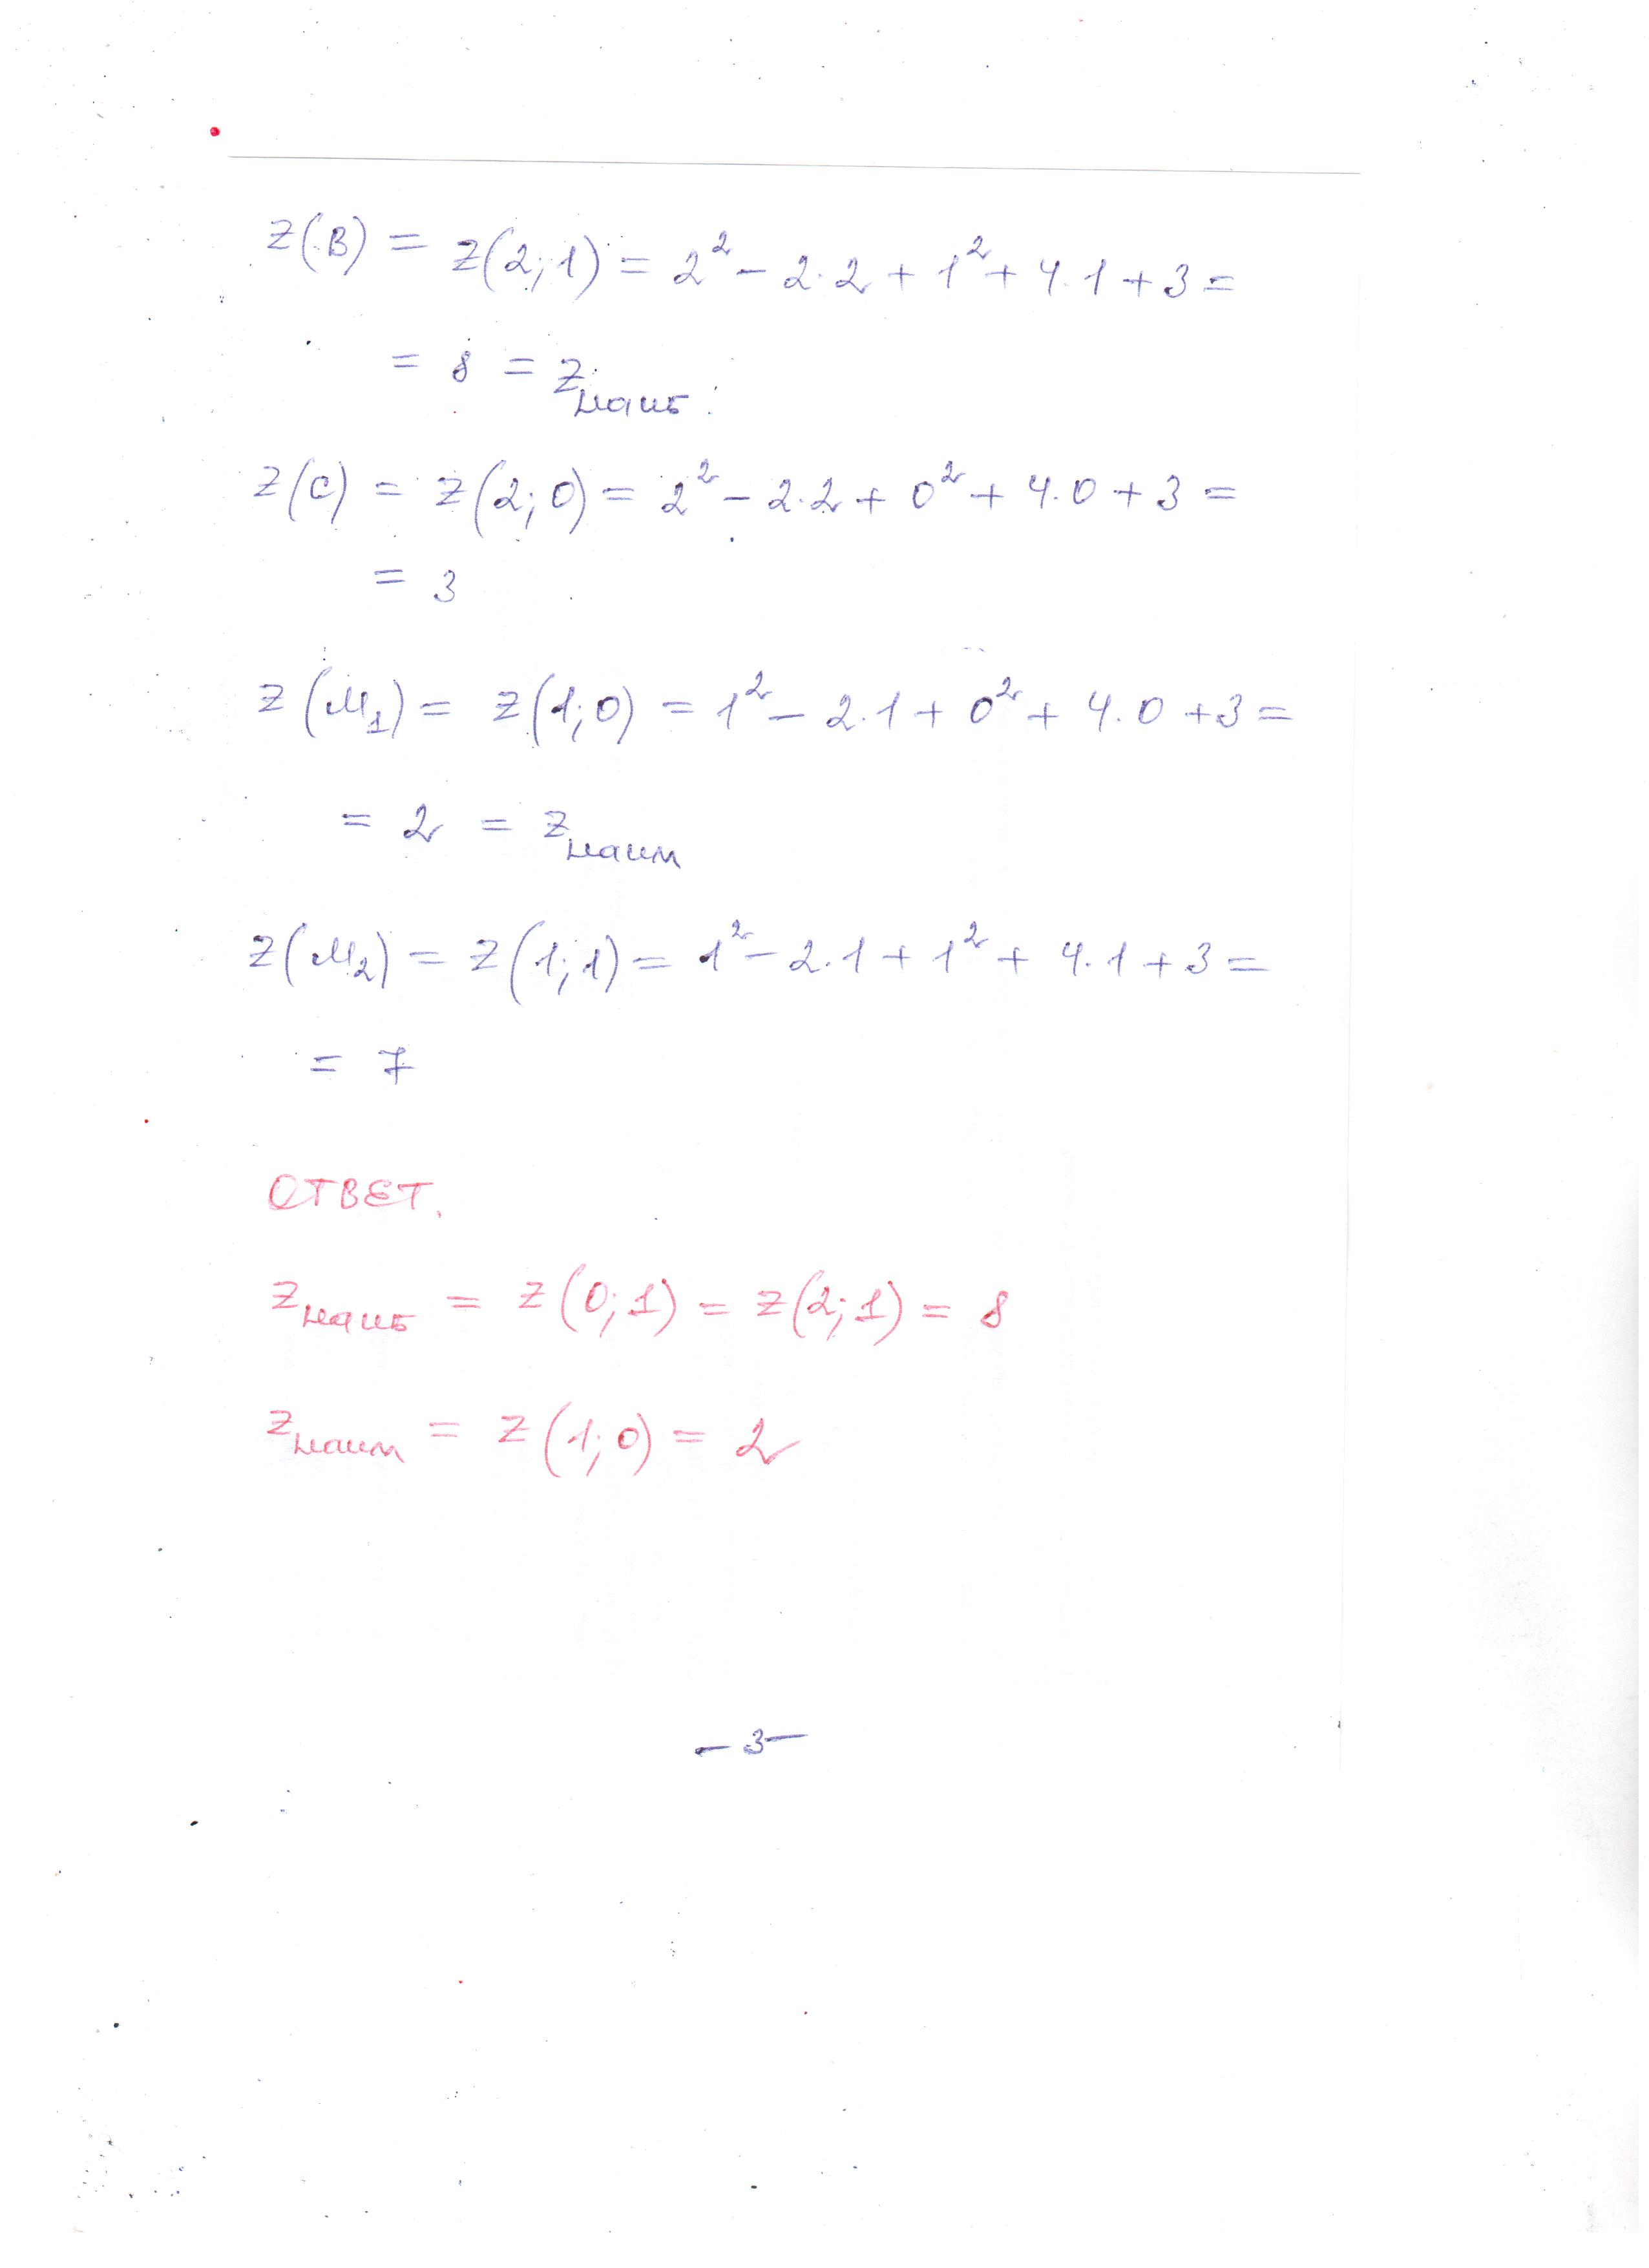 z(B) = z(2;1) = 2² - 2·2 + 1² + 4·1 + 3 =
= 8 = z наиб.
z(C) = z(2;0) = 2² - 2·2 + 0² + 4·0 + 3 =
= 3
z(M₁) = z(1;0) = 1² - 2·1 + 0² + 4·0 + 3 =
= 2 = z наим
z(M₂) = z(1;1) = 1² - 2·1 + 1² + 4·1 + 3 =
= 7
ОТВЕТ.
z наиб = z(0;1) = z(2;1) = 8
z наим = z(1;0) = 2
- 3 -